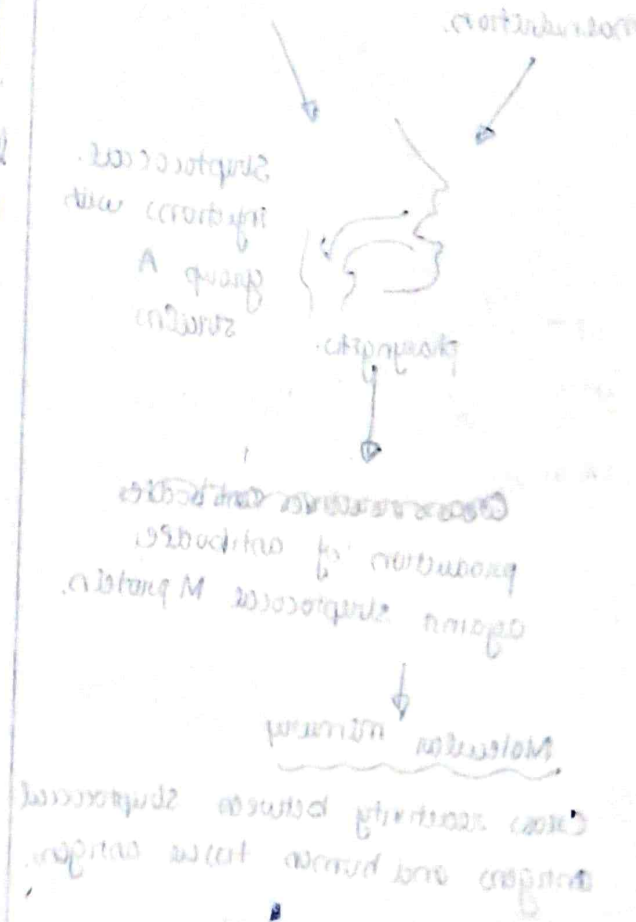 malnutrition.
Streptococcal
infections with
group A
strains
pharyngitis.
production of antibodies
against streptococcal M protein.
Molecular mimicry
Cross reactivity between streptococcal
antigens and human tissue antigen.